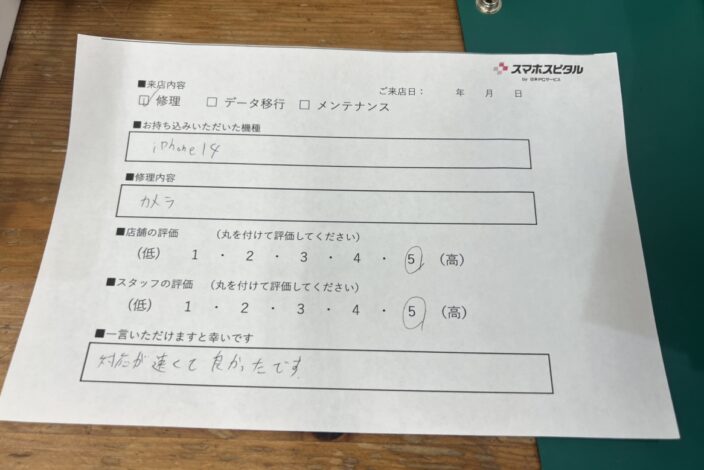 スマホスピタル
by 日本PCサービス
■来店内容
ご来店日： 年 月 日
☑ 修理 □ データ移行 □ メンテナンス
■お持ち込みいただいた機種
iPhone14
■修理内容
カメラ
■店舗の評価 （丸を付けて評価してください）
（低） 1 ・ 2 ・ 3 ・ 4 ・ 5 （高）
■スタッフの評価 （丸を付けて評価してください）
（低） 1 ・ 2 ・ 3 ・ 4 ・ 5 （高）
■一言いただけますと幸いです
対応が速くて良かったです